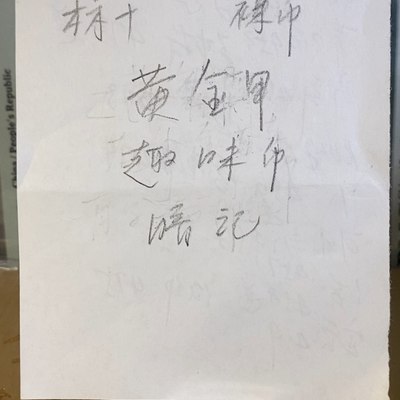 黄金甲
趣味印
暗记
China / People's Republic